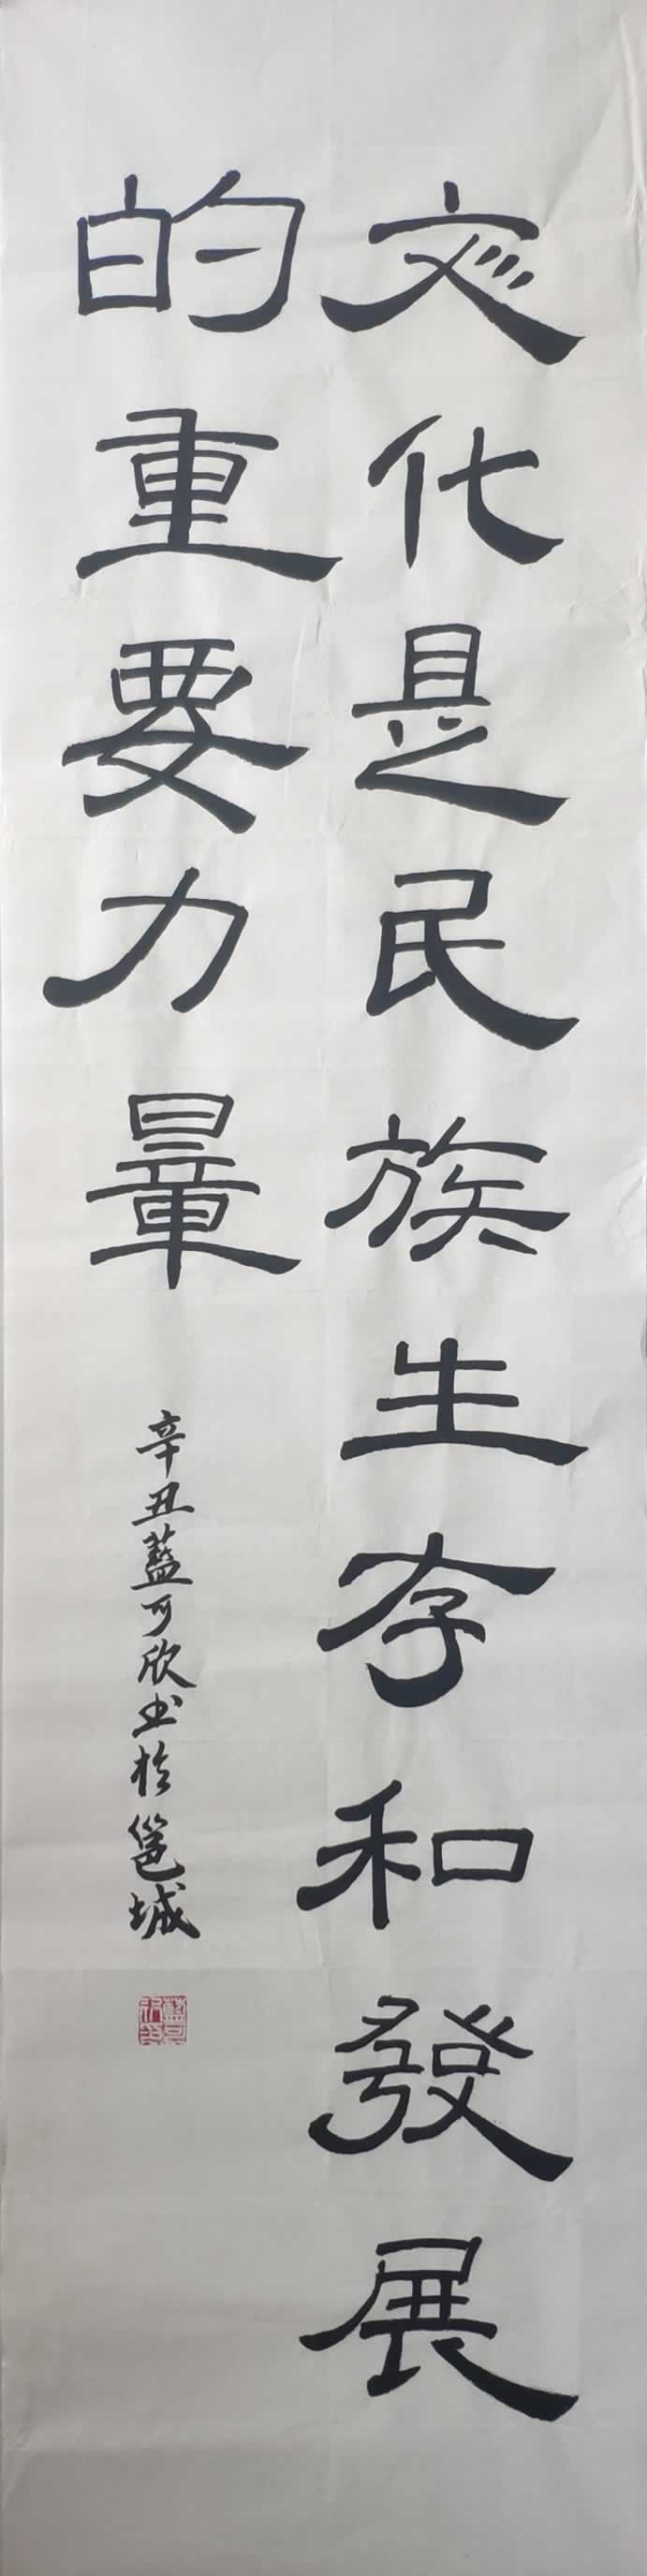 文化是民族生存和發展
的重要力量
辛丑藍可欣书於邕城